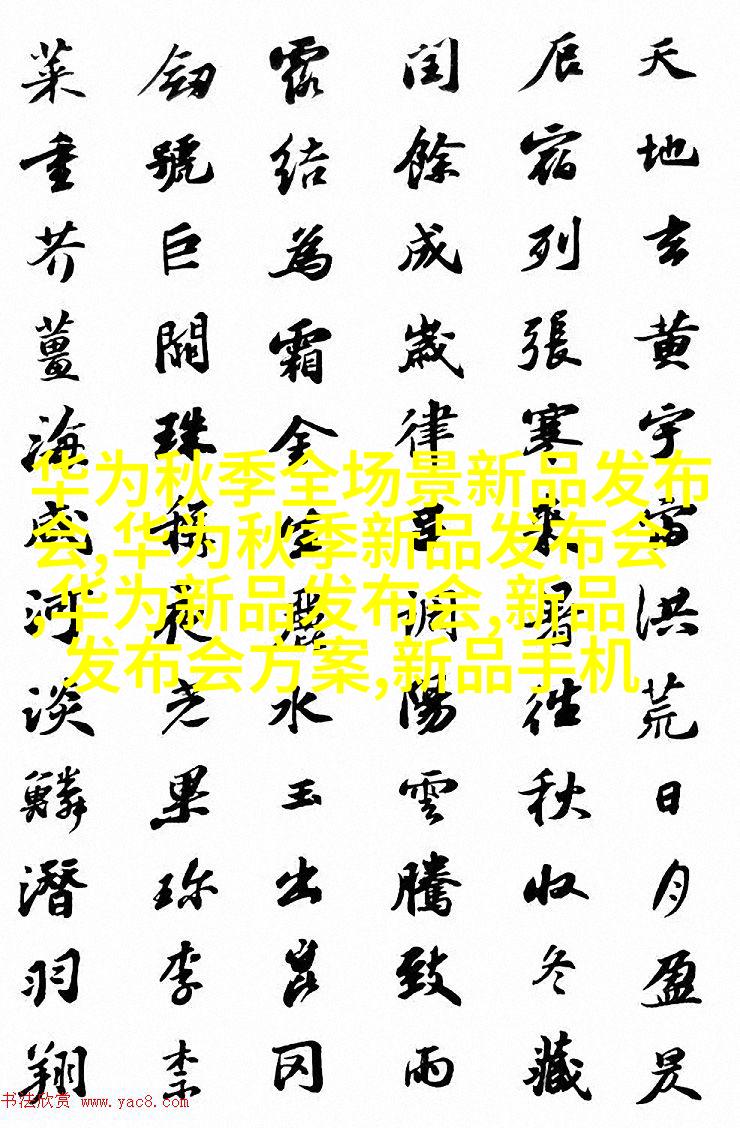 天地玄黄宇宙洪荒日月盈昃
辰宿列張寒來暑往秋收冬藏
閏餘成歲律呂調陽雲騰致雨
露結為霜金生麗水玉出崑岡
劍號巨闕珠稱夜光果珍李柰
菜重芥薑海鹹河淡鱗潛羽翔
华为秋季全场景新品发布
会,华为秋季新品发布会
,华为新品发布会,新品
发布会方案,新品手机
书法欣赏 www.yac8.com